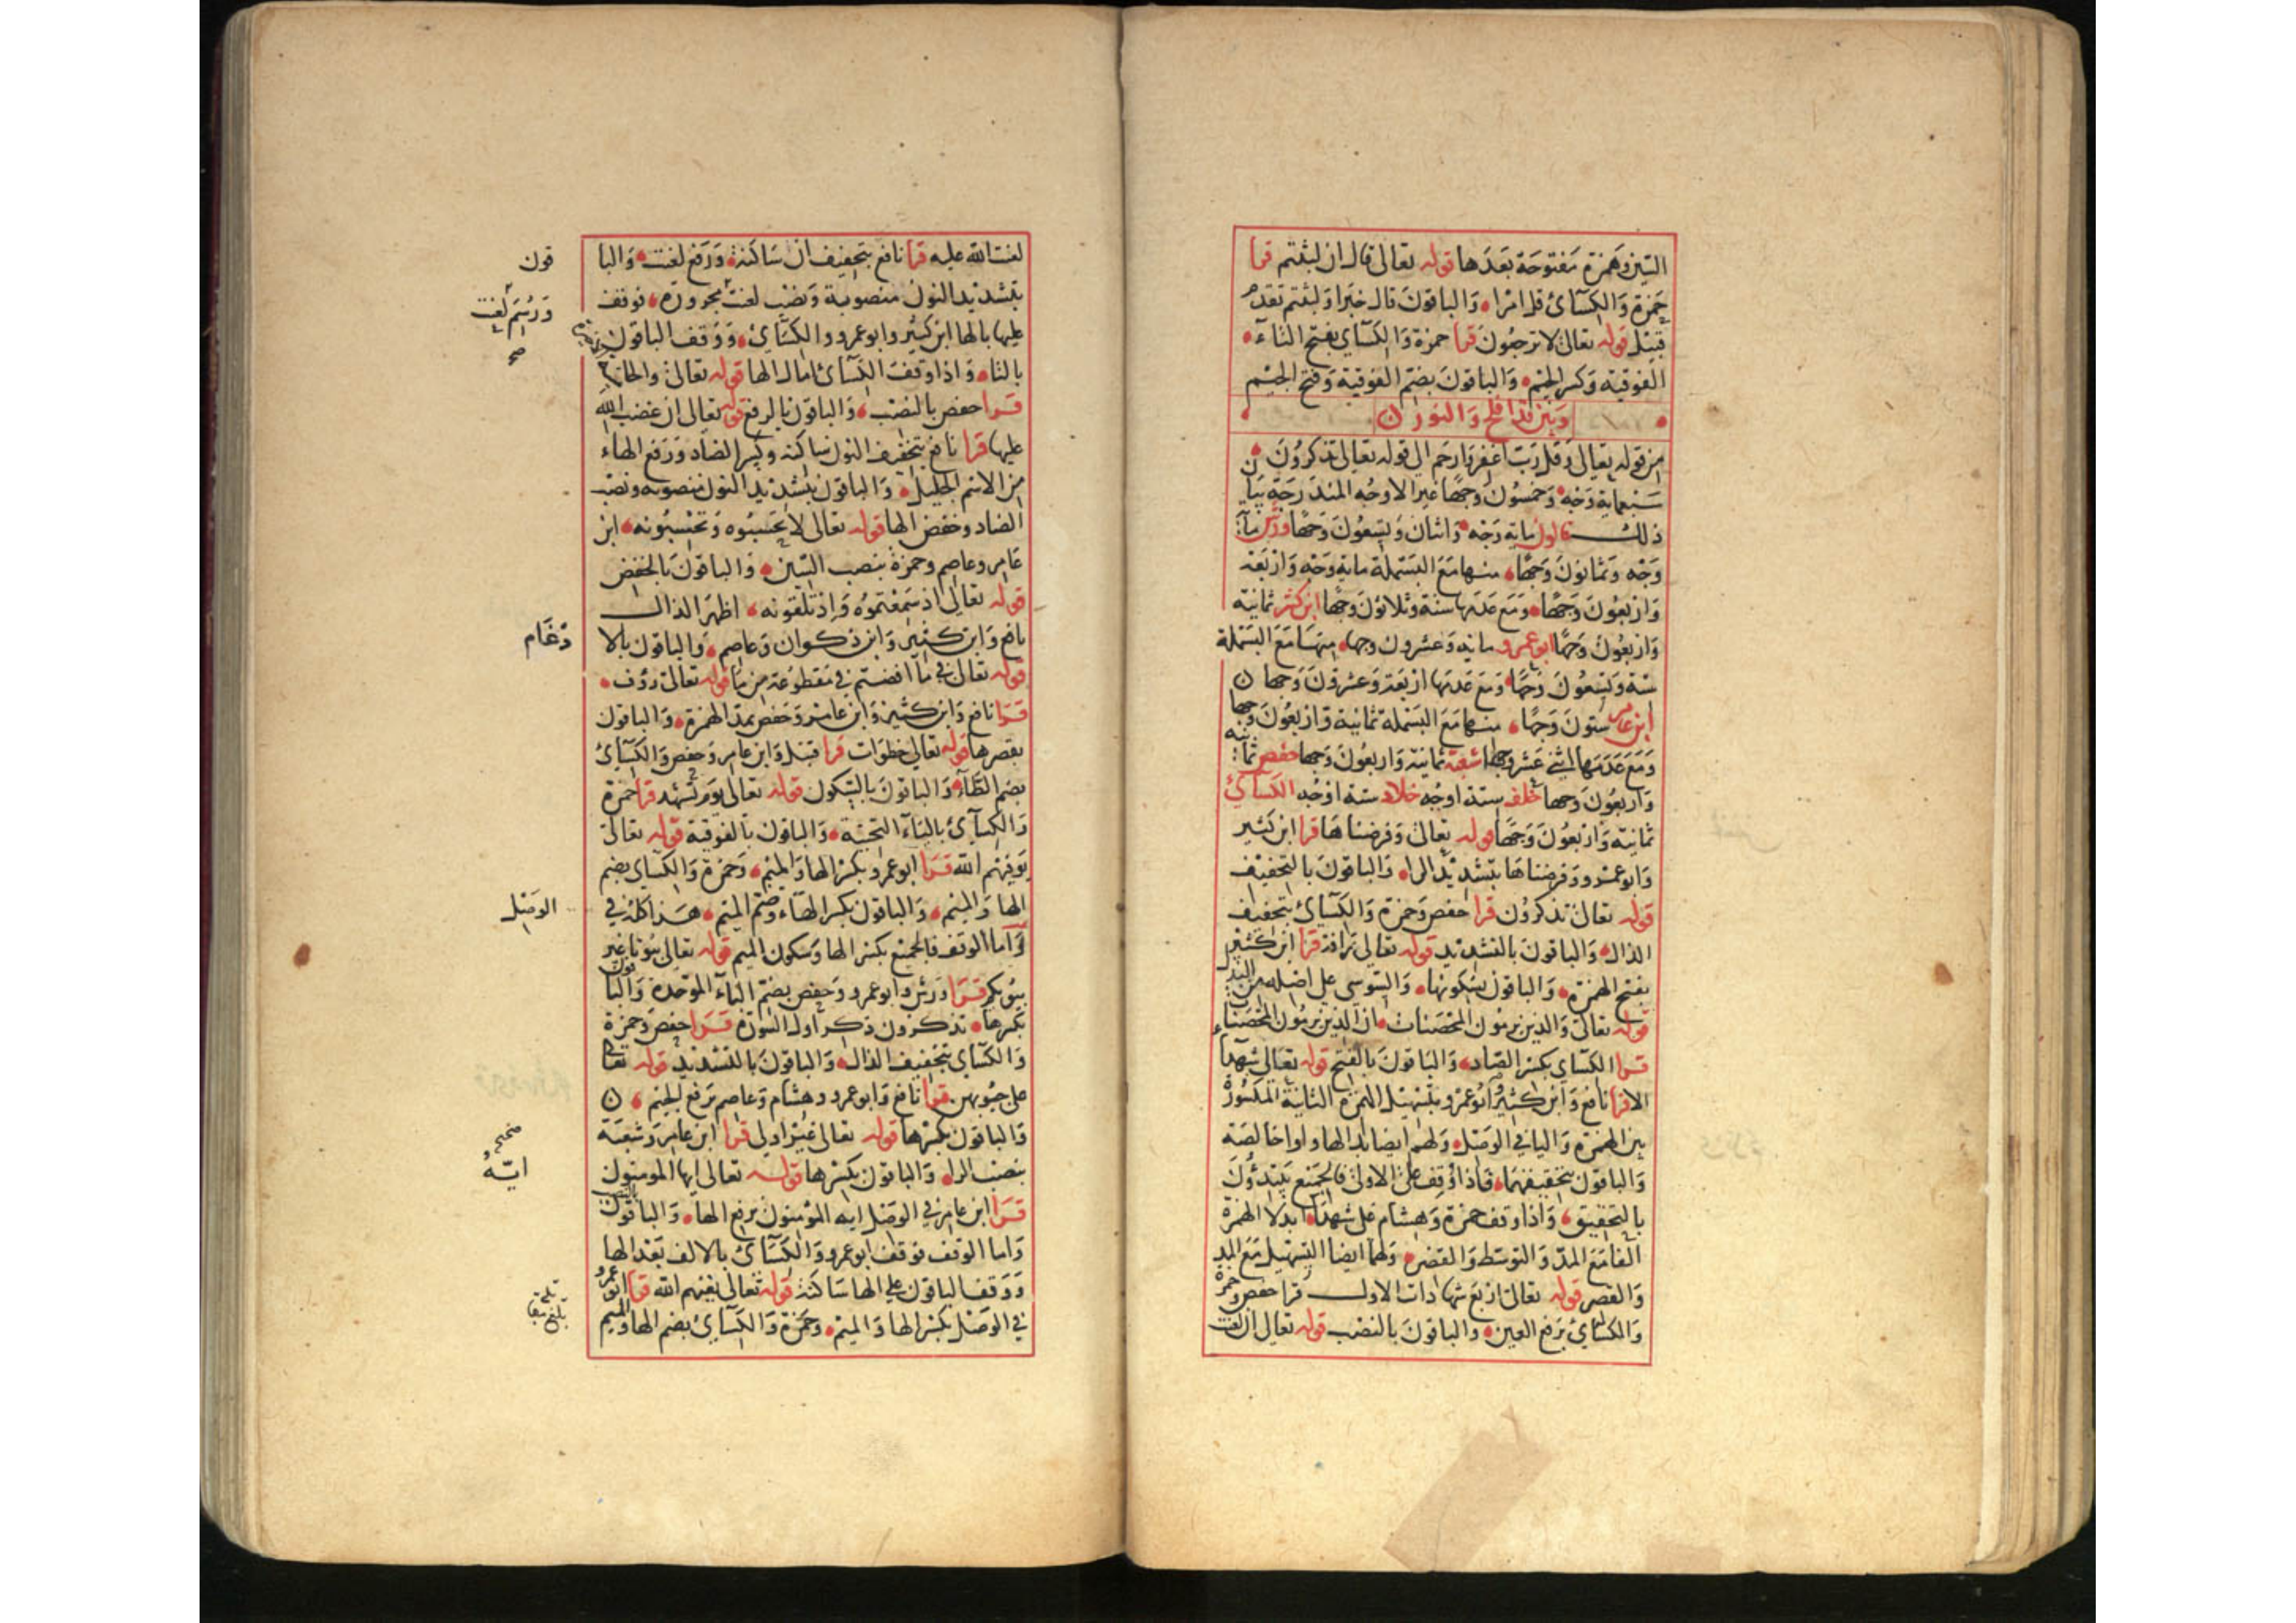 السين وهمزة مفتوحة بعدها قوله تعالى قال ان لبثتم قرا
حمزة والكسآئ قل امرا والباقون قال خبرا ولبثتم تقدم
قبل قوله تعالى لا ترجعون قرا حمزة والكسآي بفتح التآء
الفوقية وكسر الجيم والباقون بضم الفوقية وفتح الجيم
وبين قد افلح والنور
من قوله تعالى وقل رب اغفر وارحم الى قوله تعالى تذكرون
سبعماية وجه وخمسون وجها غير الاوجه المندرجة بيان
ذلك قالون ماية وجه واثنان وتسعون وجها ورش مآية
وجه وثمانون وجها منها مع البسملة ماية وجه واربعة
واربعون وجها ومع عدمها ستة وثلاثون وجها ابن كثير ثمانية
واربعون وجها ابو عمرو ماية وعشرون وجها منها مع البسملة
ستة وتسعون وجها ومع عدمها اربعة وعشرون وجها
ابن عامر ستون وجها منها مع البسملة ثمانية واربعون وجها
ومع عدمها اثنى عشر وجها شعبة ثمانية واربعون وجها حفص ثمانية
واربعون وجها خلف ستة اوجه خلاد ستة اوجه الكسآئ
ثمانية واربعون وجها قوله تعالى وفرضناها قرا ابن كثير
وابو عمرو وفرضناها بتشديد الرا والباقون بالتخفيف
قوله تعالى تذكرون قرا حفص وحمزة والكسآئ بتخفيف
الذال والباقون بالتشديد قوله تعالى رافة قرا ابن كثير
بفتح الهمزة والباقون بسكونها والسوسي على اصله من البدل
قوله تعالى والذين يرمون المحصنات ان الذين يرمون المحصنات
قرا الكسآي بكسر الصاد والباقون بالفتح قوله تعالى شهدآ
الا قرا نافع وابن كثير وابو عمرو بتسهيل الهمزة الثانية المكسورة
بين الهمزة واليا في الوصل ولهم ايضا ابدالها واوا خالصة
والباقون بتحقيقهما فاذا وقف على الاولى فالجميع يبتدؤن
بالتحقيق واذا وقف حمزة وهشام على شهدآ ابدلا الهمزة
الفا مع المد والتوسط والقصر ولهما ايضا التسهيل مع المد
والقصر قوله تعالى اربع شهادات الاول قرا حفص وحمزة
والكسآئ برفع العين والباقون بالنصب قوله تعالى ان لعنت
لعنت الله عليه قرا نافع بتخفيف ان ساكنة ورفع لعنت والبا
قون
بتشديد النون منصوبة ونصب لعنت مجرورة فوقف
ورسم لعنت
صح
عليها بالها ابن كثير وابو عمرو والكسآئ ووقف الباقون
بالتا واذا وقف الكسآئ امال الها قوله تعالى والخامسة
قرا حفص بالنصب والباقون بالرفع قوله تعالى ان غضب الله
عليها قرا نافع بتخفيف النون ساكنه وكسر الضاد ورفع الهاء
من الاسم الجليل والباقون بتشديد النون منصوبه ونصب
الضاد وخفض الها قوله تعالى لا تحسبوه وتحسبونه ابن
عامر وعاصم وحمزة بنصب السين والباقون بالخفض
قوله تعالى اذ سمعتموه واذ تلقونه اظهر الذال
نافع وابن كثير وابن ذكوان وعاصم والباقون بالا
دغام
قوله تعالى في ما افضتم في مقطوعة من ما قوله تعالى رؤف
قرا نافع وابن كثير وابن عامر وحفص بمد الهمزة والباقون
بقصرها قوله تعالى خطوات قرا قنبل وابن عامر وحفص والكسآئ
بضم الطآء والباقون بالسكون قوله تعالى يوم تشهد قرا حمزة
والكسآئ باليآء التحتية والباقون بالفوقية قوله تعالى
يوفيهم الله قرا ابو عمرو بكسر الها والميم وحمزة والكسآي بضم
الها والميم والباقون بكسر الهاء وضم الميم هذا كله في
الوصل
وآما الوقف فالجميع بكسر الها وسكون الميم قوله تعالى بيوتا غير
بيوتكم قرا ورش وابو عمرو وحفص بضم البآء الموحدة والباقون
بكسرها تذكرون ذكر اول السورة قرا حفص وحمزة
والكسآي بتخفيف الذال والباقون بالتشديد قوله تعالى
على جيوبهن قرا نافع وابو عمرو وهشام وعاصم برفع الجيم
والباقون بكسرها قوله تعالى غير اولي قرا ابن عامر وشعبة
بنصب الرا والباقون بكسرها قوله تعالى ايها المومنون
ايه
قرا ابن عامر في الوصل ايه المؤمنون برفع الها والباقون بالنصب
واما الوقف فوقف ابو عمرو والكسآئ بالالف بعد الها
ووقف الباقون على الها ساكنة قوله تعالى يغنهم الله قرا ابو عمرو
في الوصل بكسر الها والميم وحمزة والكسآئ بضم الها والميم